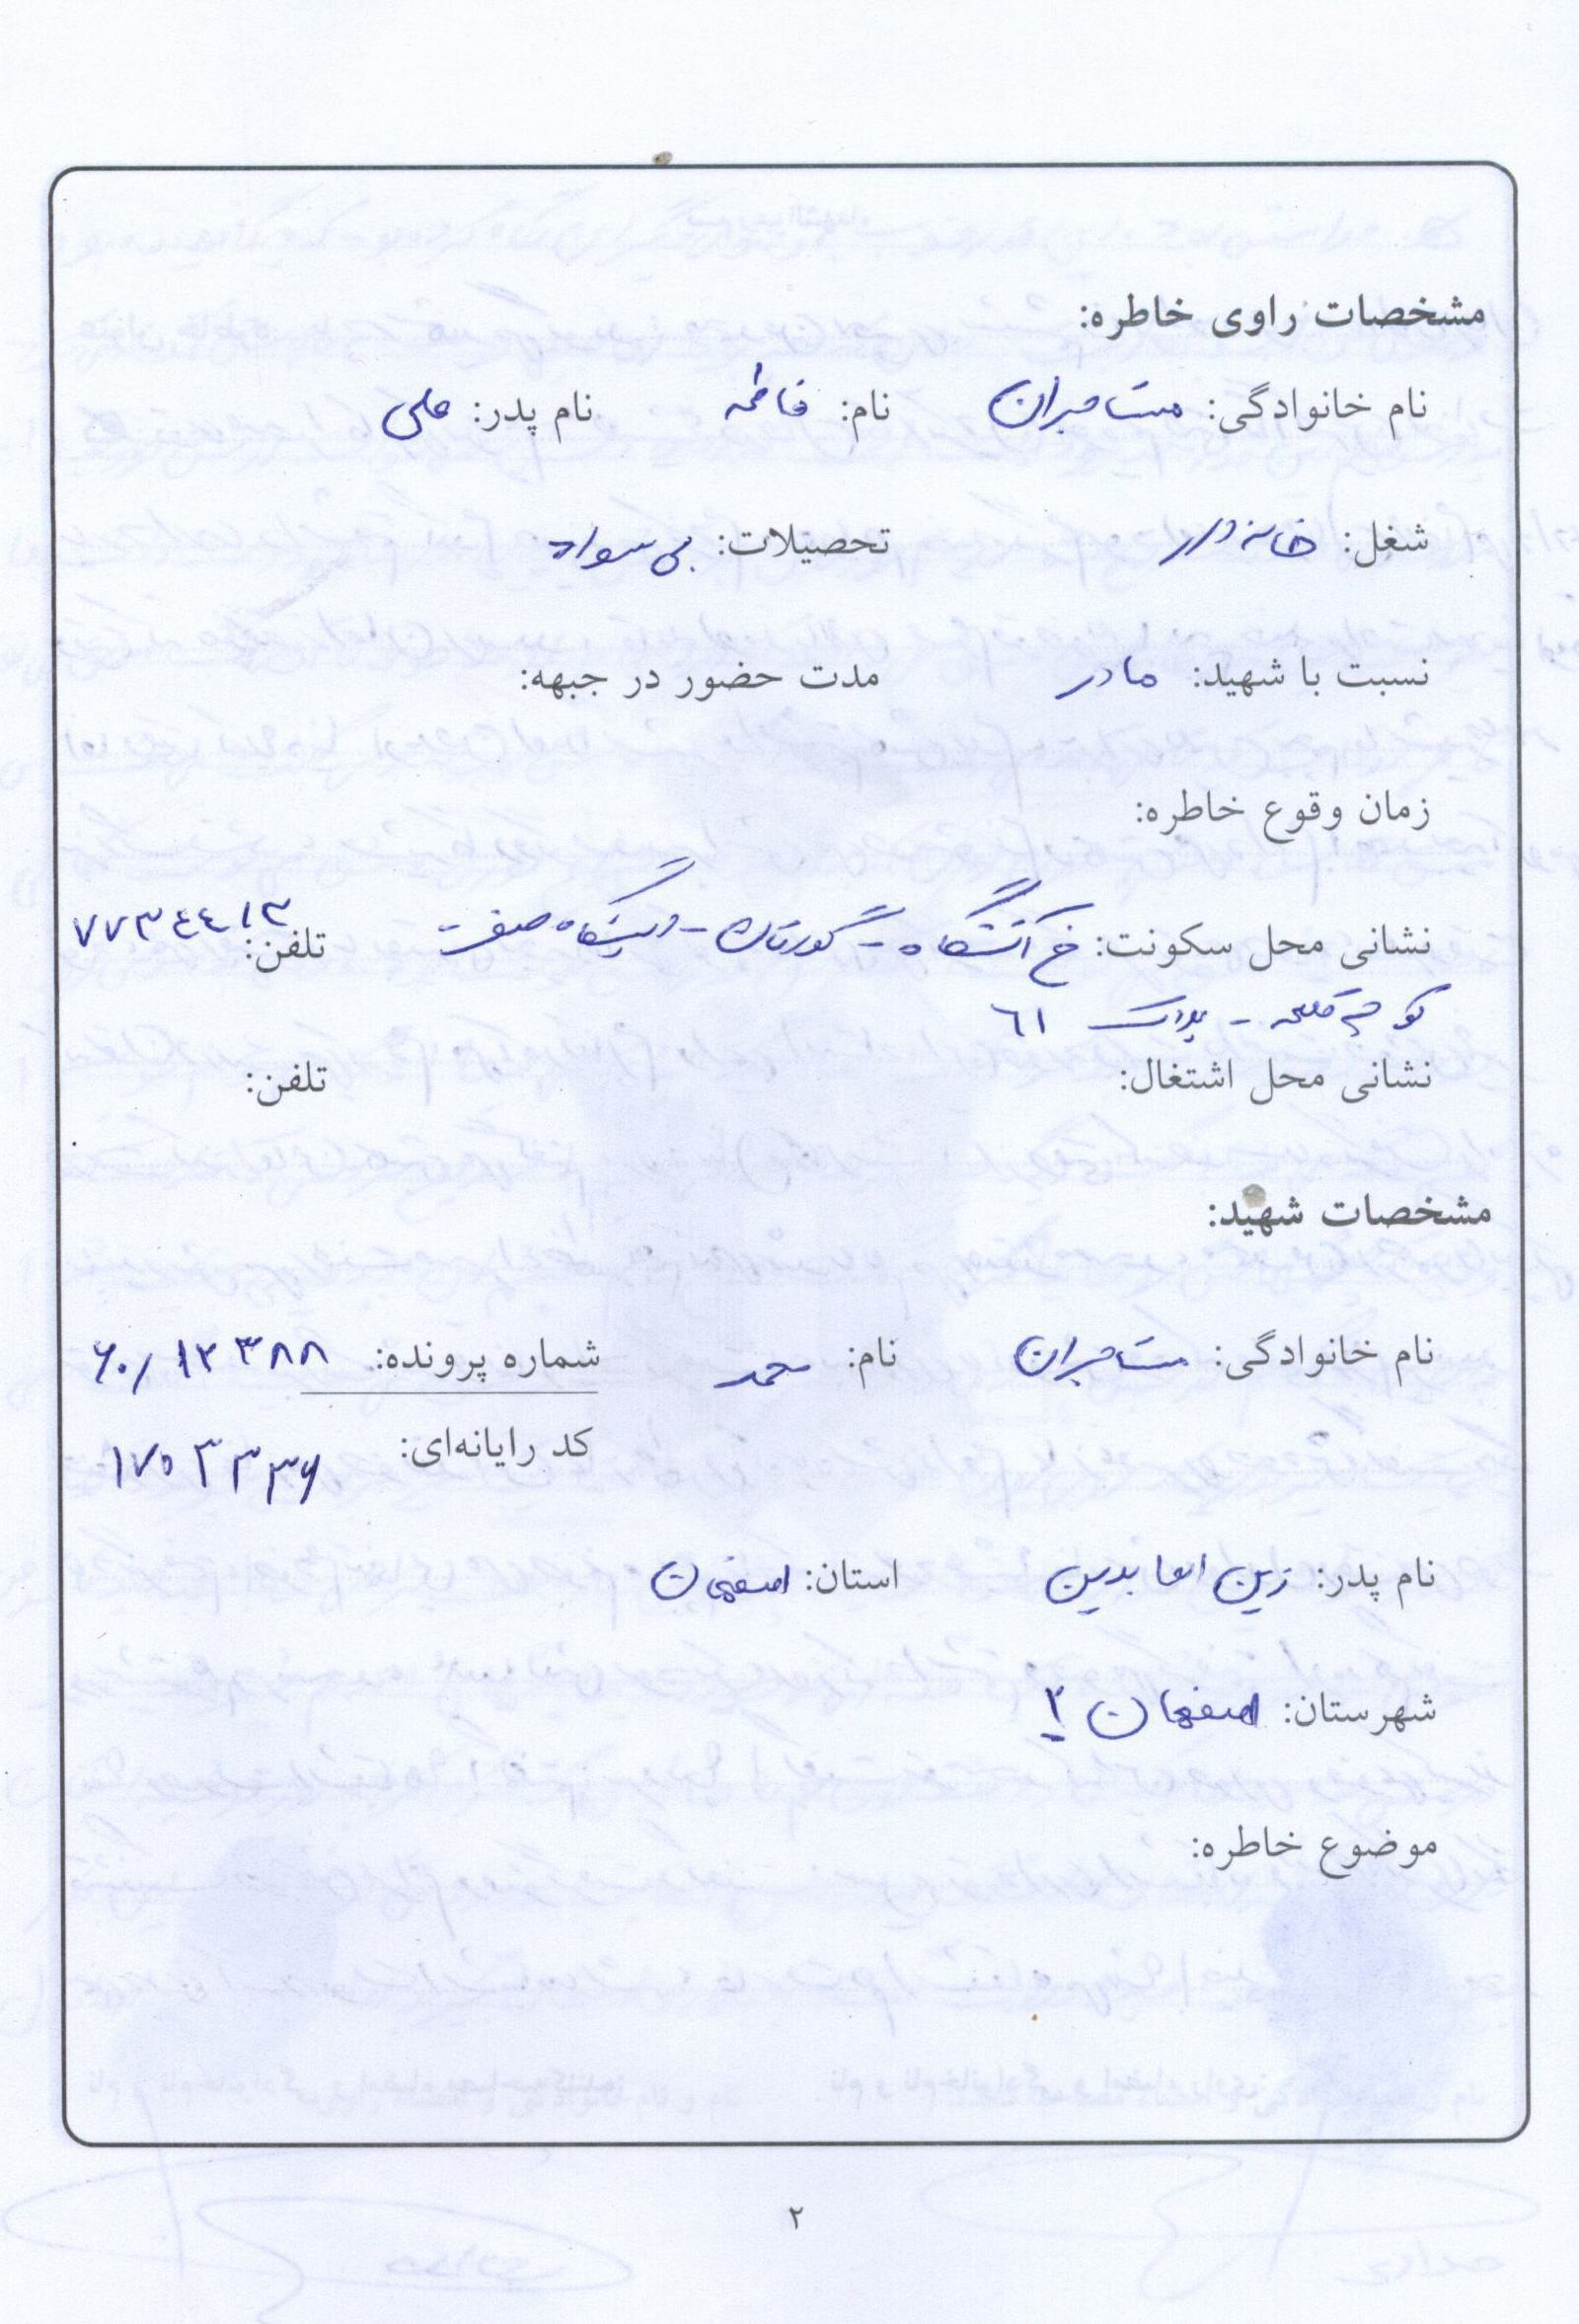 مشخصات راوی خاطره:
نام خانوادگی: مستاجران نام: فاطمه نام پدر: علی
شغل: خانه دار تحصیلات: بی سواد
نسبت با شهید: مادر مدت حضور در جبهه:
زمان وقوع خاطره:
نشانی محل سکونت: خ آتشگاه - گورتان - ایستگاه صفرت تلفن: ۷۷۳۴۴۱۳
کوچه قلعه - پلاک ۶۱
نشانی محل اشتغال: تلفن:
مشخصات شهید:
نام خانوادگی: مستاجران نام: محمد شماره پرونده: ۶۰/۱۲۳۸۸
کد رایانه‌ای: ۱۷۰۳۳۳۶
نام پدر: زین العابدین استان: اصفهان
شهرستان: اصفهان ۲
موضوع خاطره:
۲